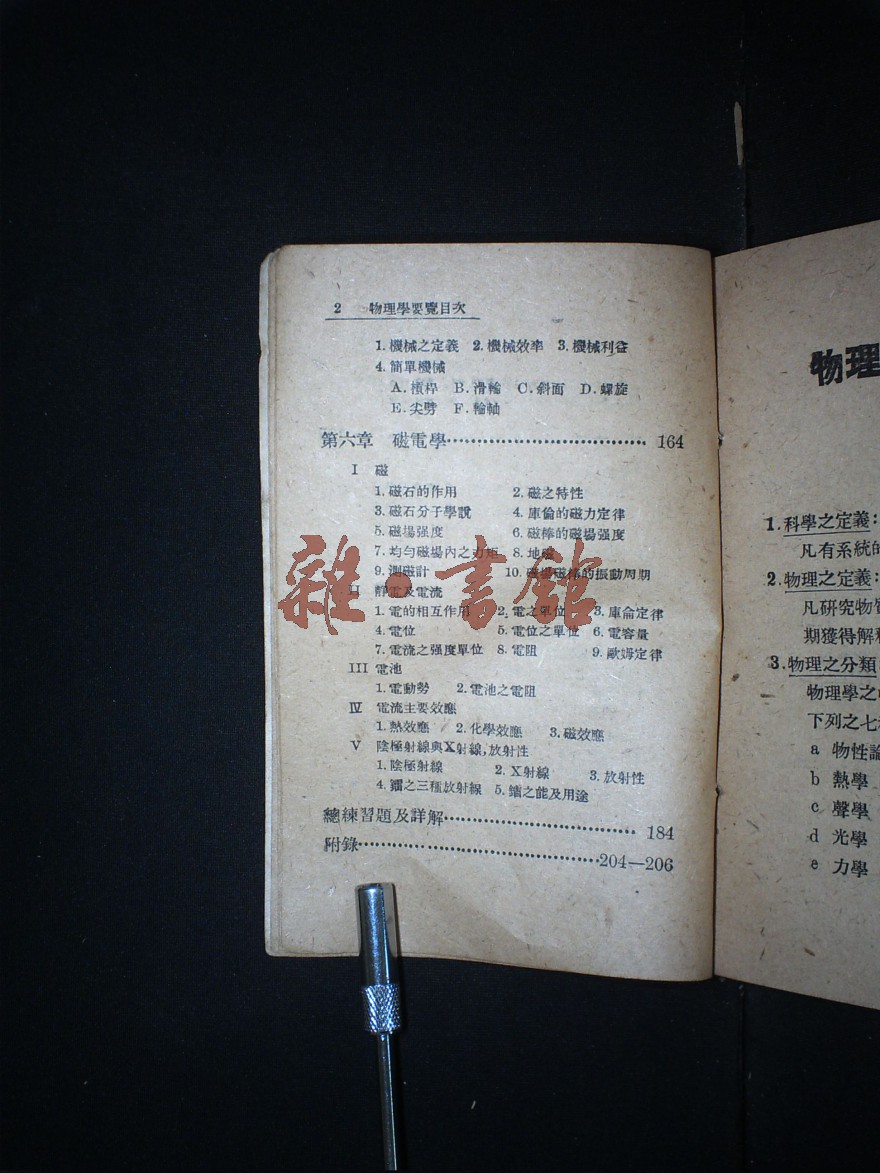 2 物理學要覽目次
1.機械之定義 2.機械效率 3.機械利益
4.簡單機械
A.槓桿 B.滑輪 C.斜面 D.螺旋
E.尖劈 F.輪軸
第六章 磁電學 164
I 磁
1.磁石的作用 2.磁之特性
3.磁石分子學說 4.庫倫的磁力定律
5.磁場强度 6.磁棒的磁場强度
7.均勻磁場內之力矩 8.地磁
9.測磁計 10.磁場磁棒的振動周期
II 靜電及電流
1.電的相互作用 2.電之單位 3.庫侖定律
4.電位 5.電位之單位 6.電容量
7.電流之强度單位 8.電阻 9.歐姆定律
III 電池
1.電動勢 2.電池之電阻
IV 電流主要效應
1.熱效應 2.化學效應 3.磁效應
V 陰極射線與X射線,放射性
1.陰極射線 2.X射線 3.放射性
4.鐳之三種放射線 5.鐳之能及用途
總練習題及詳解 184
附錄 204—206
雜·書館
物理
1.科學之定義:
凡有系統的
2.物理之定義:
凡研究物質
期獲得解釋
3.物理之分類
物理學之
下列之七
a 物性論
b 熱學
c 聲學
d 光學
e 力學